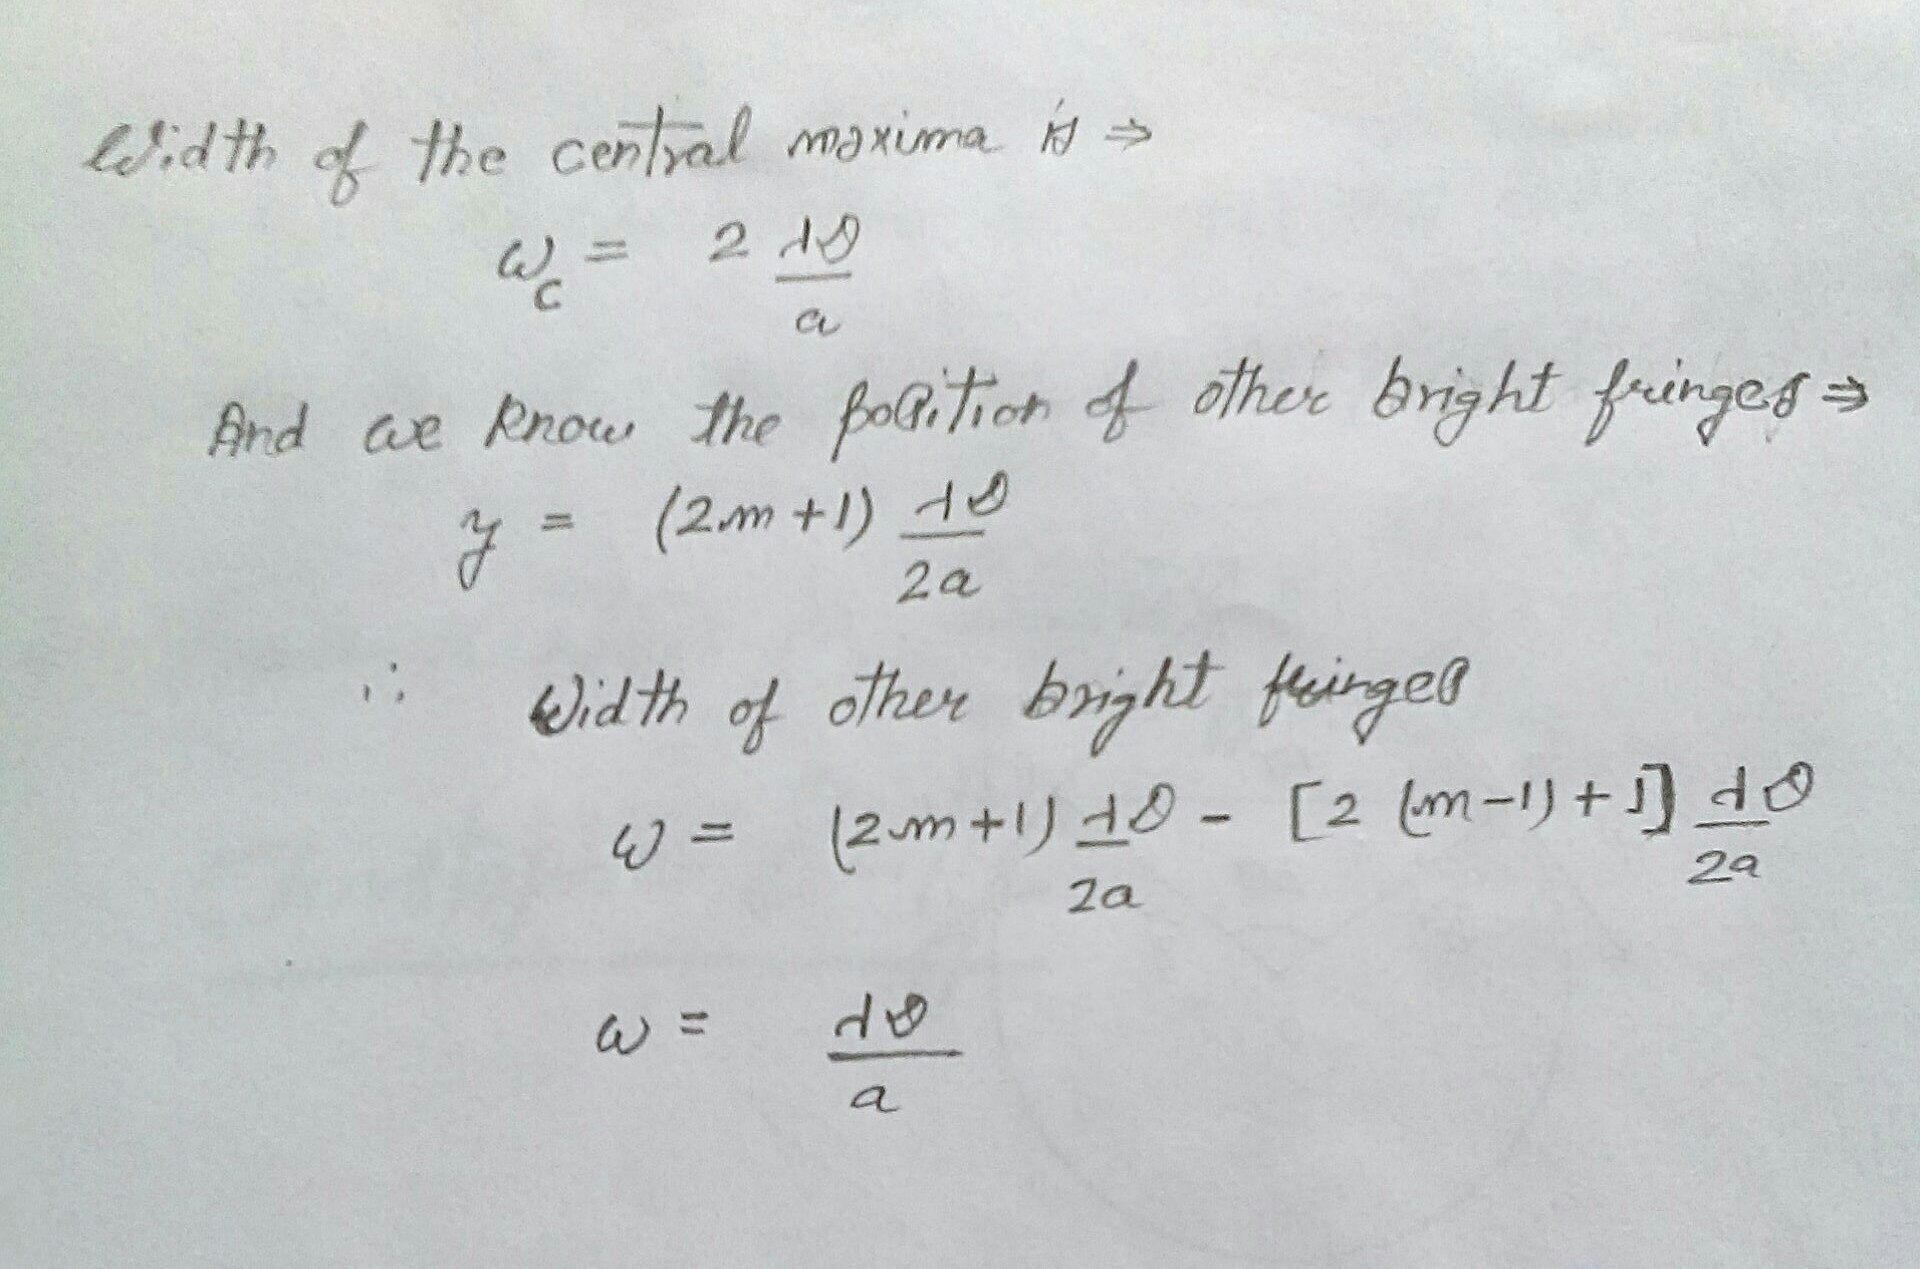 Width of the central maxima is ⇒
ω_c = 2 λD/a
And we know the position of other bright fringes ⇒
y = (2m+1) λD/2a
∴ Width of other bright fringes
ω = (2m+1) λD/2a - [2 (m-1) + 1] λD/2a
ω = λD/a